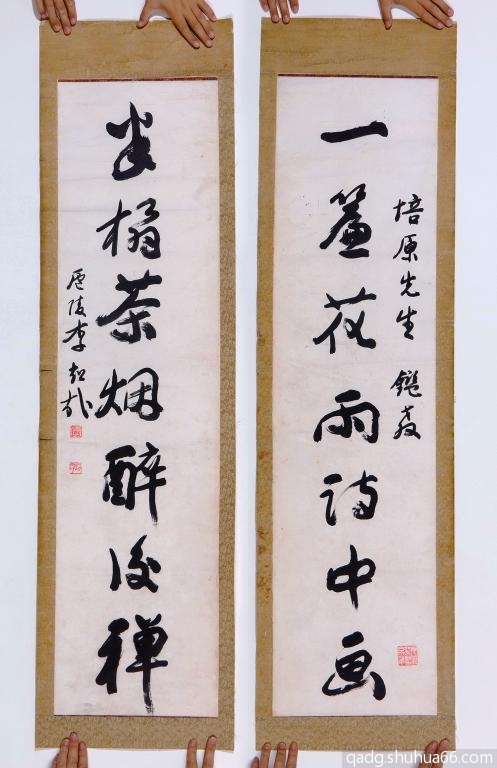 一簾花雨诗中画
培原先生 鑑教
半榻茶烟醉後禅
廬陵李超哉
qadg.shuhua66.com